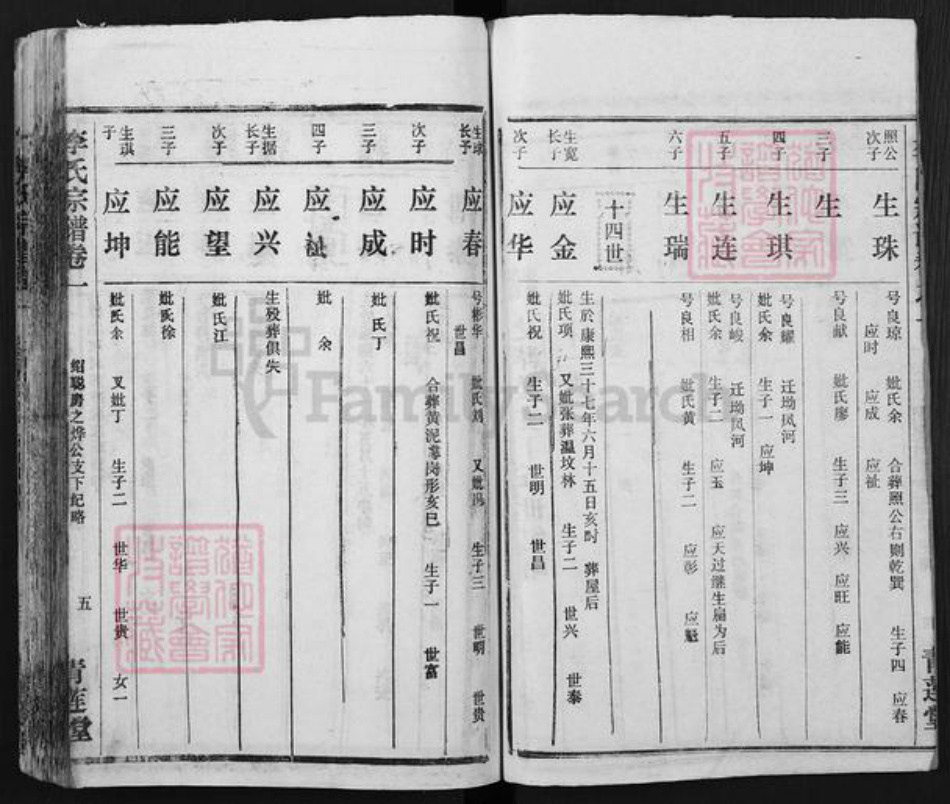 照公
次子
生珠
号良琼 妣氏余 合葬照公右侧乾巽 生子四 应春
应时 应成 应祉
三子
生
号良猷 妣氏廖 生子三 应兴 应旺 应能
四子
生琪
号良耀 迁坳凤河
妣氏余 生子一 应坤
五子
生连
号良峻 迁坳凤河
妣氏余 生子二 应玉 应天过继生扁为后
六子
生瑞
号良相 妣氏黄 生子二 应彰 应魁
十四世
生宽
长子
应金
生於康熙三十七年六月十五日亥时 葬屋后
妣氏项 又妣张葬温坟林 生子二 世兴 世泰
次子
应华
妣氏祝 生子二 世明 世昌
青莲堂
生球
长子
应春
号彬华 妣氏刘 又妣冯 生子三 世明 世贵
世昌
次子
应时
妣氏祝 合葬黄泥岗形亥巳 生子一 世富
三子
应成
妣氏丁
四子
应祉
妣 余
生据
长子
应兴
生殁葬俱失
次子
应望
妣氏江
三子
应能
妣氏徐
生琪
子
应坤
妣氏余 又妣丁 生子二 世华 世贵 女一
李氏宗谱卷一
绍聪房之烨公支下纪略
五
青莲堂
FamilySearch